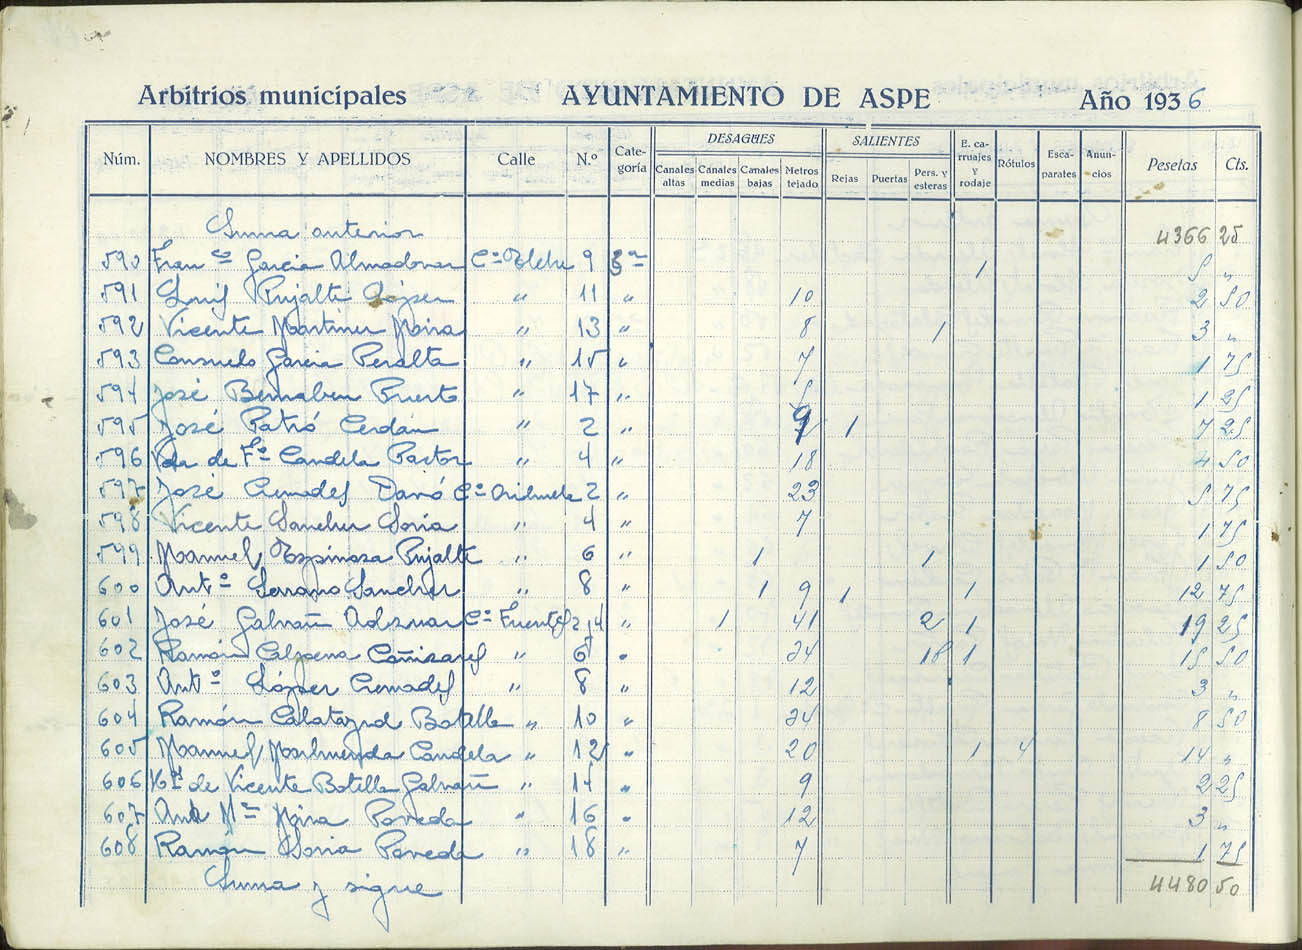 Arbitrios municipales AYUNTAMIENTO DE ASPE Año 1936
DESAGÜES SALIENTES
Núm. NOMBRES Y APELLIDOS Calle N.º Cate-goría Canales altas Canales medias Canales bajas Metros tejado Rejas Puertas Pers. y esteras E. ca-rruajes y rodaje Rótulos Esca-parates Anun-cios Pesetas Cts.
Suma anterior 4366 25
590 Franco Garcia Almodovar 9 3ª 1 5 "
591 Luis Pujalte López " 11 " 10 2 50
592 Vicente Martinez Mira " 13 " 8 1 3 "
593 Consuelo Garcia Peralta " 15 " 7 1 75
594 José Bernabeu Puerto " 17 " 5 1 25
595 José Patró Cerdán " 2 " 9 1 7 25
596 Vda de Fº Candela Pastor " 4 " 18 4 50
597 José Cremades Davó 2 " 23 5 75
598 Vicente Sanchez Soria " 4 " 7 1 75
599 Manuel Espinosa Pujalte " 6 " 1 1 1 50
600 Antº Serrano Sanchez " 8 " 1 9 1 1 12 75
601 José Galvañ Aznar Cª Fuentes 2 y 4 " 1 41 2 1 19 25
602 Ramón Calpena Cañizares " 6 " 24 18 1 15 50
603 Antº López Cremades " 8 " 12 3 "
604 Ramón Calatayud Botella " 10 " 34 8 50
605 Manuel Candela " 12 " 20 1 4 14 "
606 Hºs de Vicente Botella Galvañ " 14 " 9 2 25
607 Antº Mª Mira Poveda " 16 " 12 3 "
608 Ramón Soria Poveda " 18 " 7 1 75
Suma y sigue 4480 50